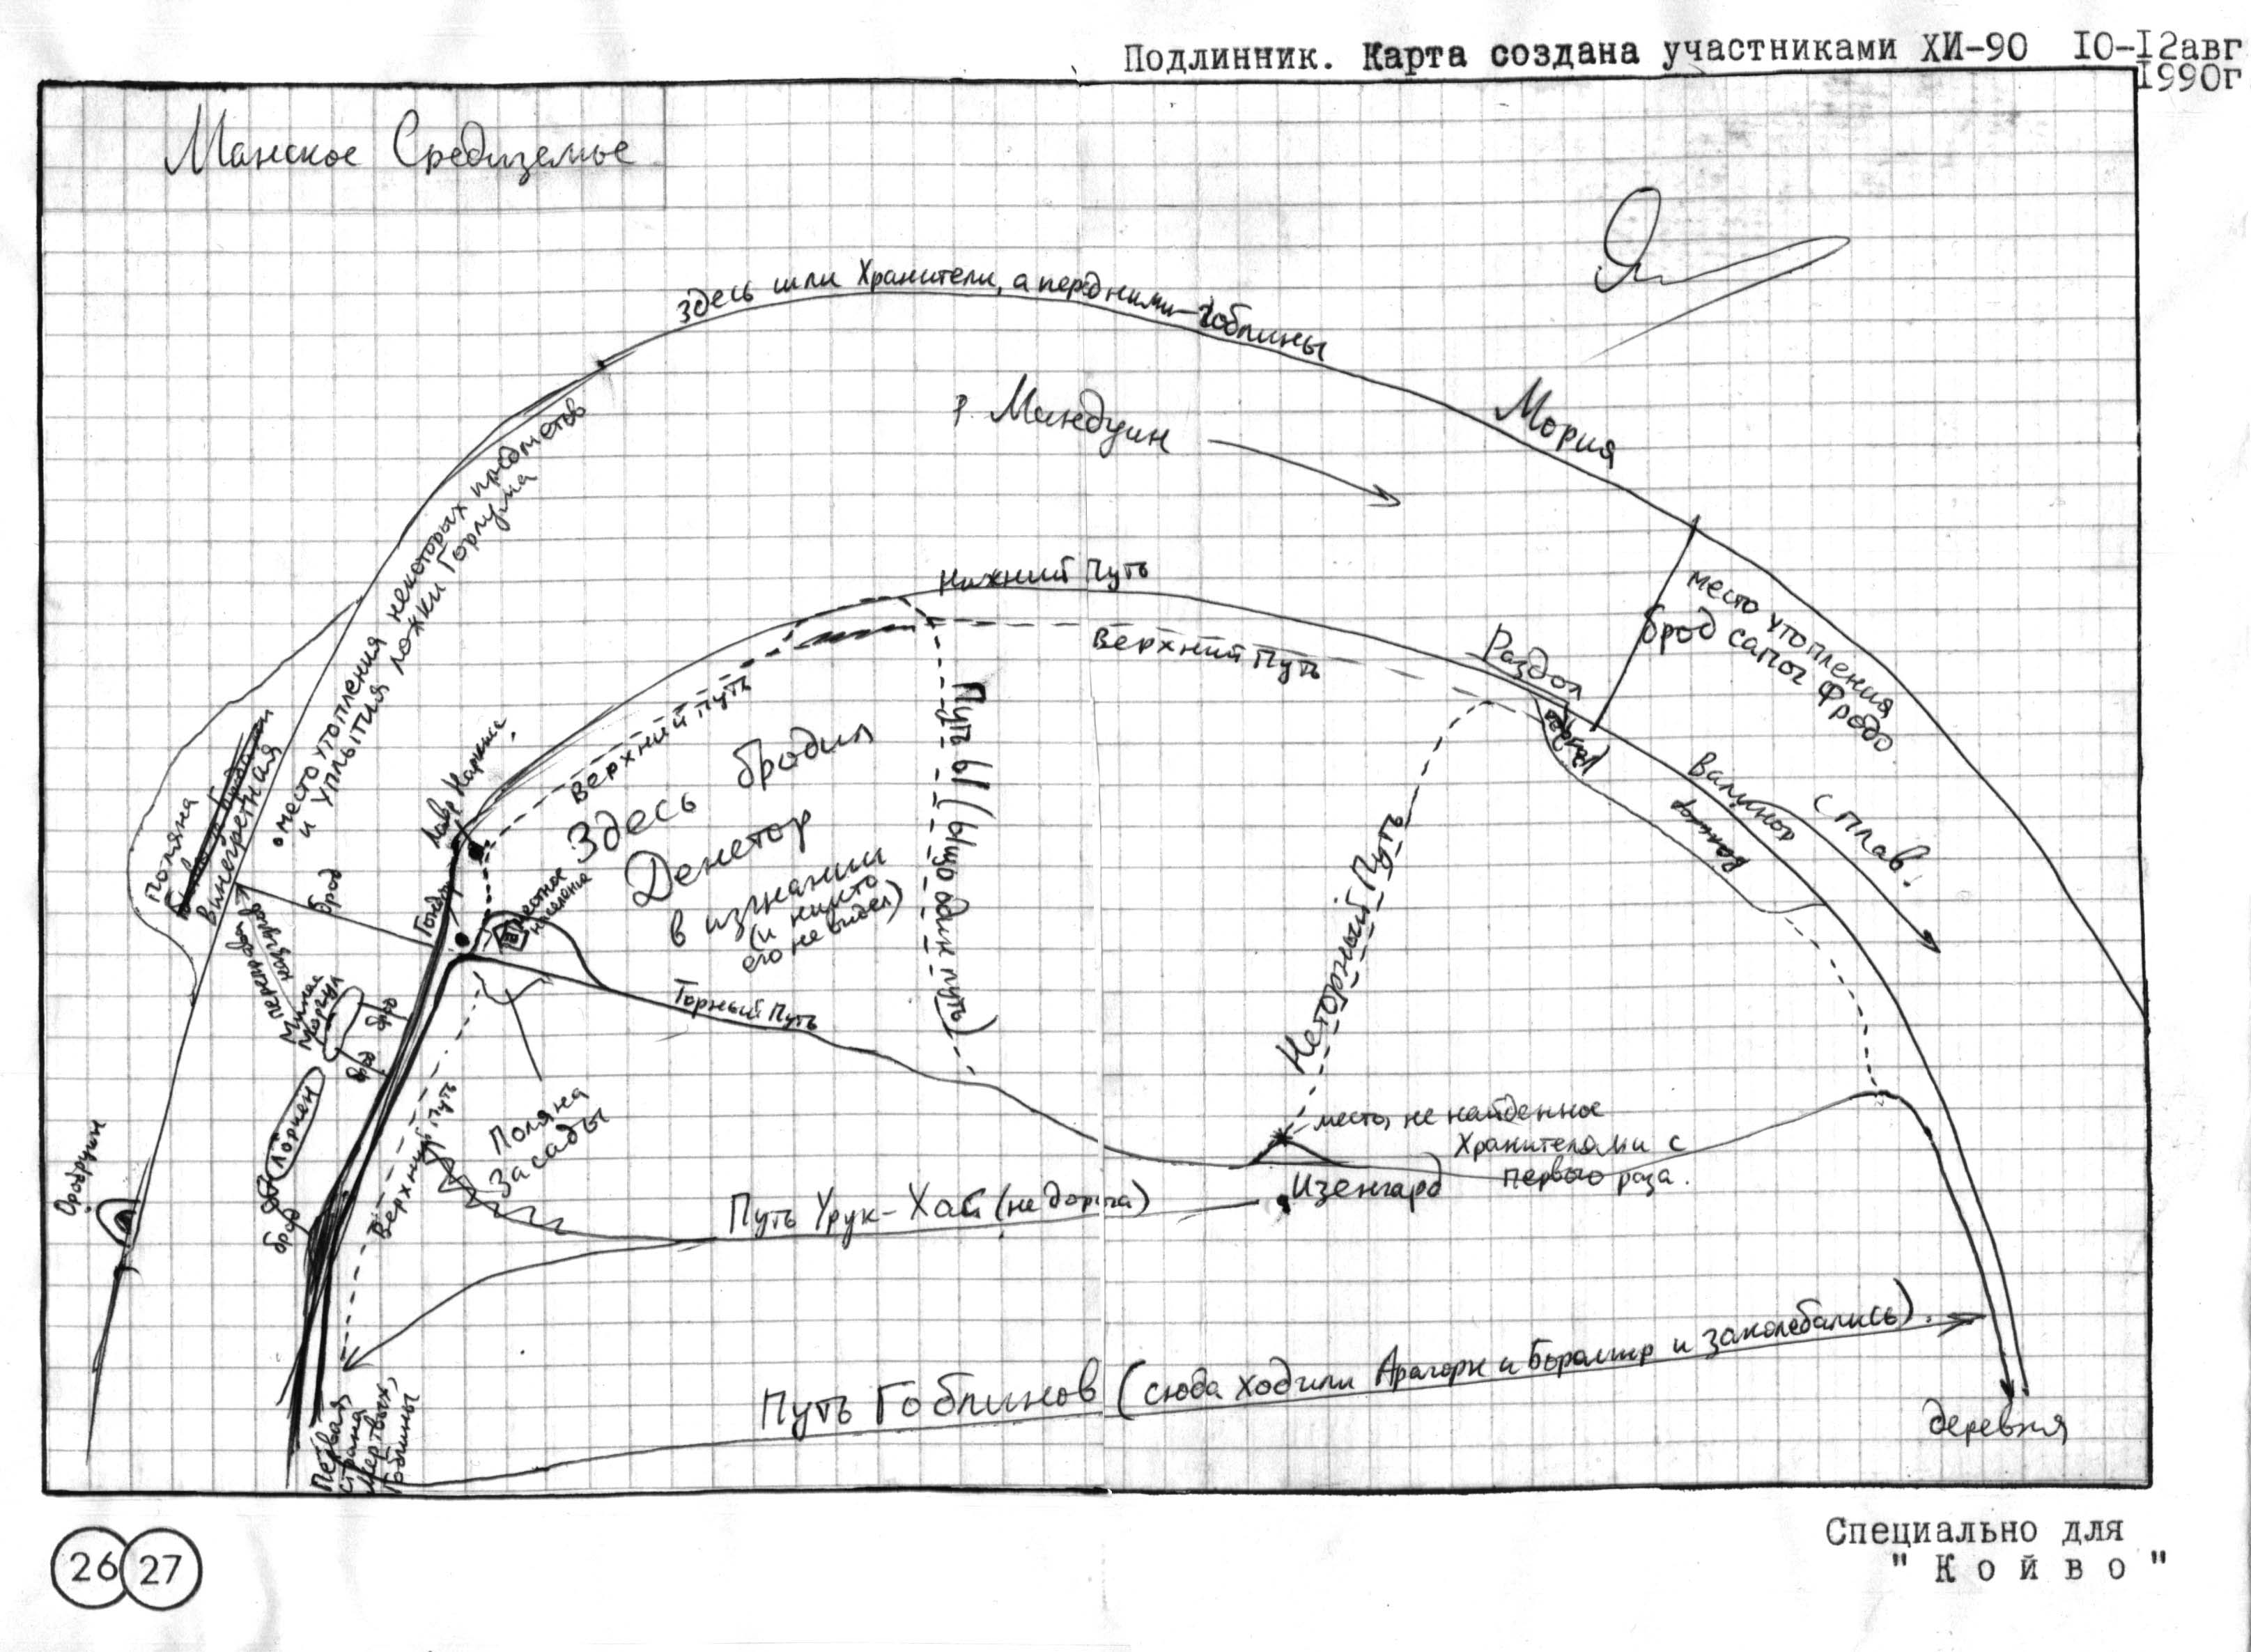 Подлинник. Карта создана участниками ХИ-90 10-12авг
1990г
Манское Средиземье
Здесь шли Хранители, а перед ними - гоблины
р. Мандуин
Мория
место утопления некоторых предметов
и уплытия ложки Горлума
Нижний Путь
Верхний Путь
Раздол
место утопления
брод сапог Фродо
Валинор
Сплав!
Верхний Путь
Путь Ы (Ышо один путь)
Здесь бродил
Денетор
в изгнании
(и никто
его не видел)
поляна
винегретная
брод
Гондор
местное
население
переправа
назгулов
Минас
Моргул
брод
брод
Лориен
брод
Ородруин
Торный Путь
Неторный Путь
Верхний Путь
Поляна
Засады
место, не найденное
Хранителями с
первого раза.
Изенгард
Путь Урук-Хай (не дорога)
Путь Гоблинов (сюда ходили Арагорн и Боромир и заколебались).
деревня
Первая,
страна
Мертвых,
Гоблины
26 27
Специально для
"Койво"